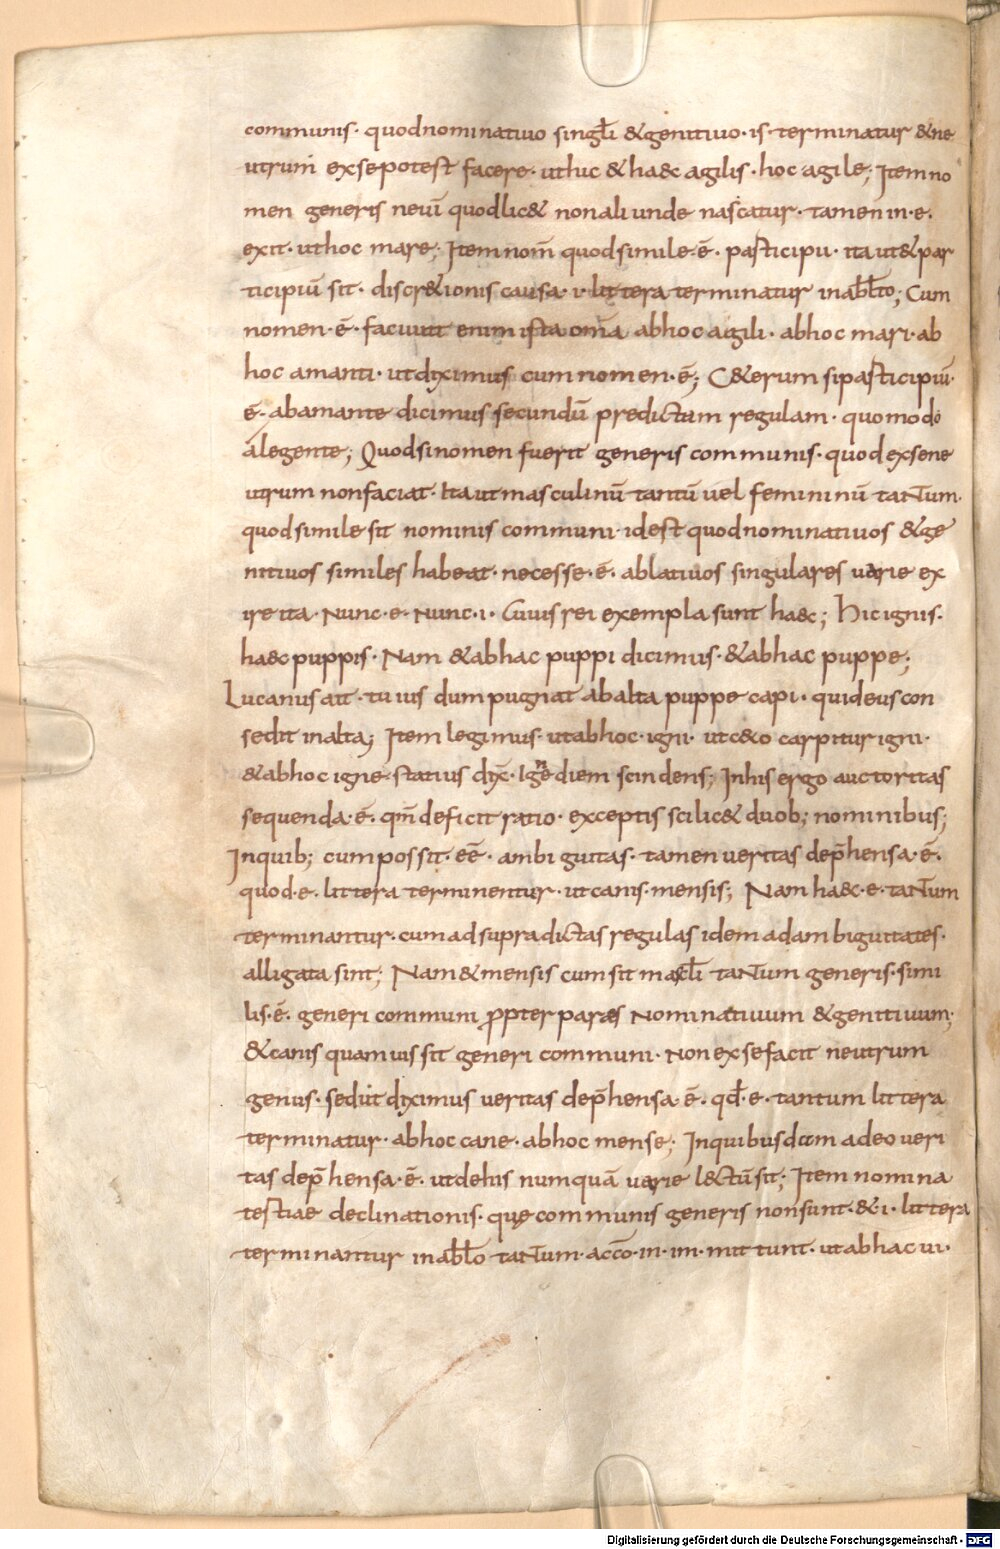 communis· quodnominatiuo singl̄i &genitiuo·is·terminatur &ne
utrum̄ exsepotest facere· uthic &ha&c agilis·hoc agile; Itemno
men generis neut̄ quodlic& nonaliunde nascatur· tamen in·e·
exit· uthoc mare; Itemnom̄ quodsimile·ē· participii· ita ut&par
ticipiū sit· discr&ionis causa·i·littera terminatur inabl̄to; Cum
nomen·ē· faciunt enim ista om̄a abhoc agili· abhoc mari·ab
hoc amanti· utdiximus cum nomen·ē; C&erum siparticipiū·
ē· abamante dicimus secundū predictam regulam· quomodo
alegente; Quodsinomen fuerit generis communis· quod exsene
utrum nonfaciat· Ita ut masculinū tantū uel femininū tantum·
quodsimile sit nominis communi· idest quodnominatiuos &ge
nitiuos similes habeat· necesse·ē· ablatiuos singulares uarie ex
ire ita· Nunc·e· Nunc·i· Cuius rei exempla sunt ha&c; hicignis·
ha&c puppis· Nam &abhac puppi dicimus· &abhac puppe;
Lucanus ait· tuius dum pugnat abalta puppe capi· quideus con
sedit inalta; Item legimus· utabhoc·igni· utc&o carpitur igni·
&abhoc igne· statius dix̄· Igne diem scindens; Inhis ergo auctoritas
sequenda·ē· qm̄ deficit ratio· exceptis scilic& duob; nominibus;
Inquib; cum possit·eē· ambiguitas· tamen ueritas dep̄hensa·ē·
quod·e· littera terminentur· utcanis·mensis; Nam ha&c·e·tantum
terminantur·cumadsupradictas regulas idem adambiguitates·
alligata sint; Nam&mensis cum sit mascl̄i tantum generis·simi
lis·ē· generi communi propter pares Nominatiuum &genitiuum;
&canis quamuis sit generi communi· Non exsefacit neutrum
genus· sedut diximus ueritas dep̄hensa·ē· qđ·e· tantum littera
terminatur· abhoc cane· abhoc mense; Inquibusdam adeo ueri
tas dep̄hensa·ē· utdehis numquā uarie l&ctū sit; Item nomina
testiae declinationis· quę communis generis nonsunt·&·i· littera
terminantur inabl̄o tantum·acc̄o·in·im·mittunt· utabhac ui·
Digitalisierung gefördert durch die Deutsche Forschungsgemeinschaft - DFG